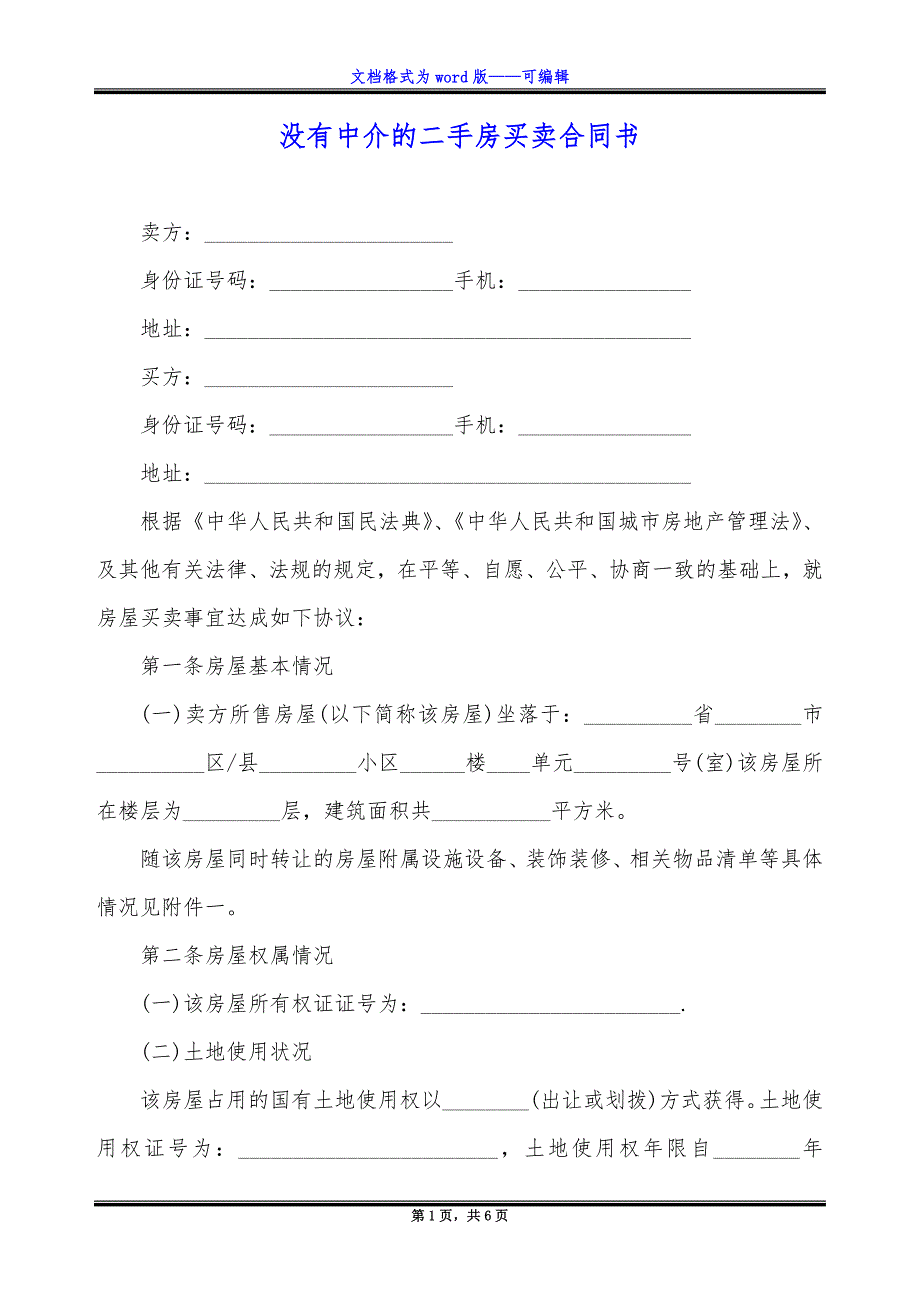 文档格式为 word 版——可编辑
没有中介的二手房买卖合同书
卖方：_______________________
身份证号码：_________________手机：________________
地址：_____________________________________________
买方：_______________________
身份证号码：_________________手机：________________
地址：_____________________________________________
根据《中华人民共和国民法典》、《中华人民共和国城市房地产管理法》、
及其他有关法律、法规的规定，在平等、自愿、公平、协商一致的基础上，就
房屋买卖事宜达成如下协议：
第一条房屋基本情况
(一)卖方所售房屋(以下简称该房屋)坐落于：__________省________市
__________区/县_________小区______楼____单元_________号(室)该房屋所
在楼层为_________层，建筑面积共___________平方米。
随该房屋同时转让的房屋附属设施设备、装饰装修、相关物品清单等具体
情况见附件一。
第二条房屋权属情况
(一)该房屋所有权证证号为：________________________.
(二)土地使用状况
该房屋占用的国有土地使用权以________(出让或划拨)方式获得。土地使
用权证号为：________________________，土地使用权年限自________年
第 1 页，共 6 页